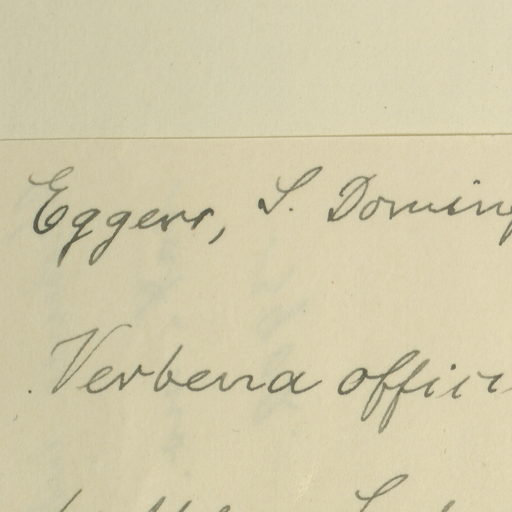 Eggers, S. Doming
Verbena offici